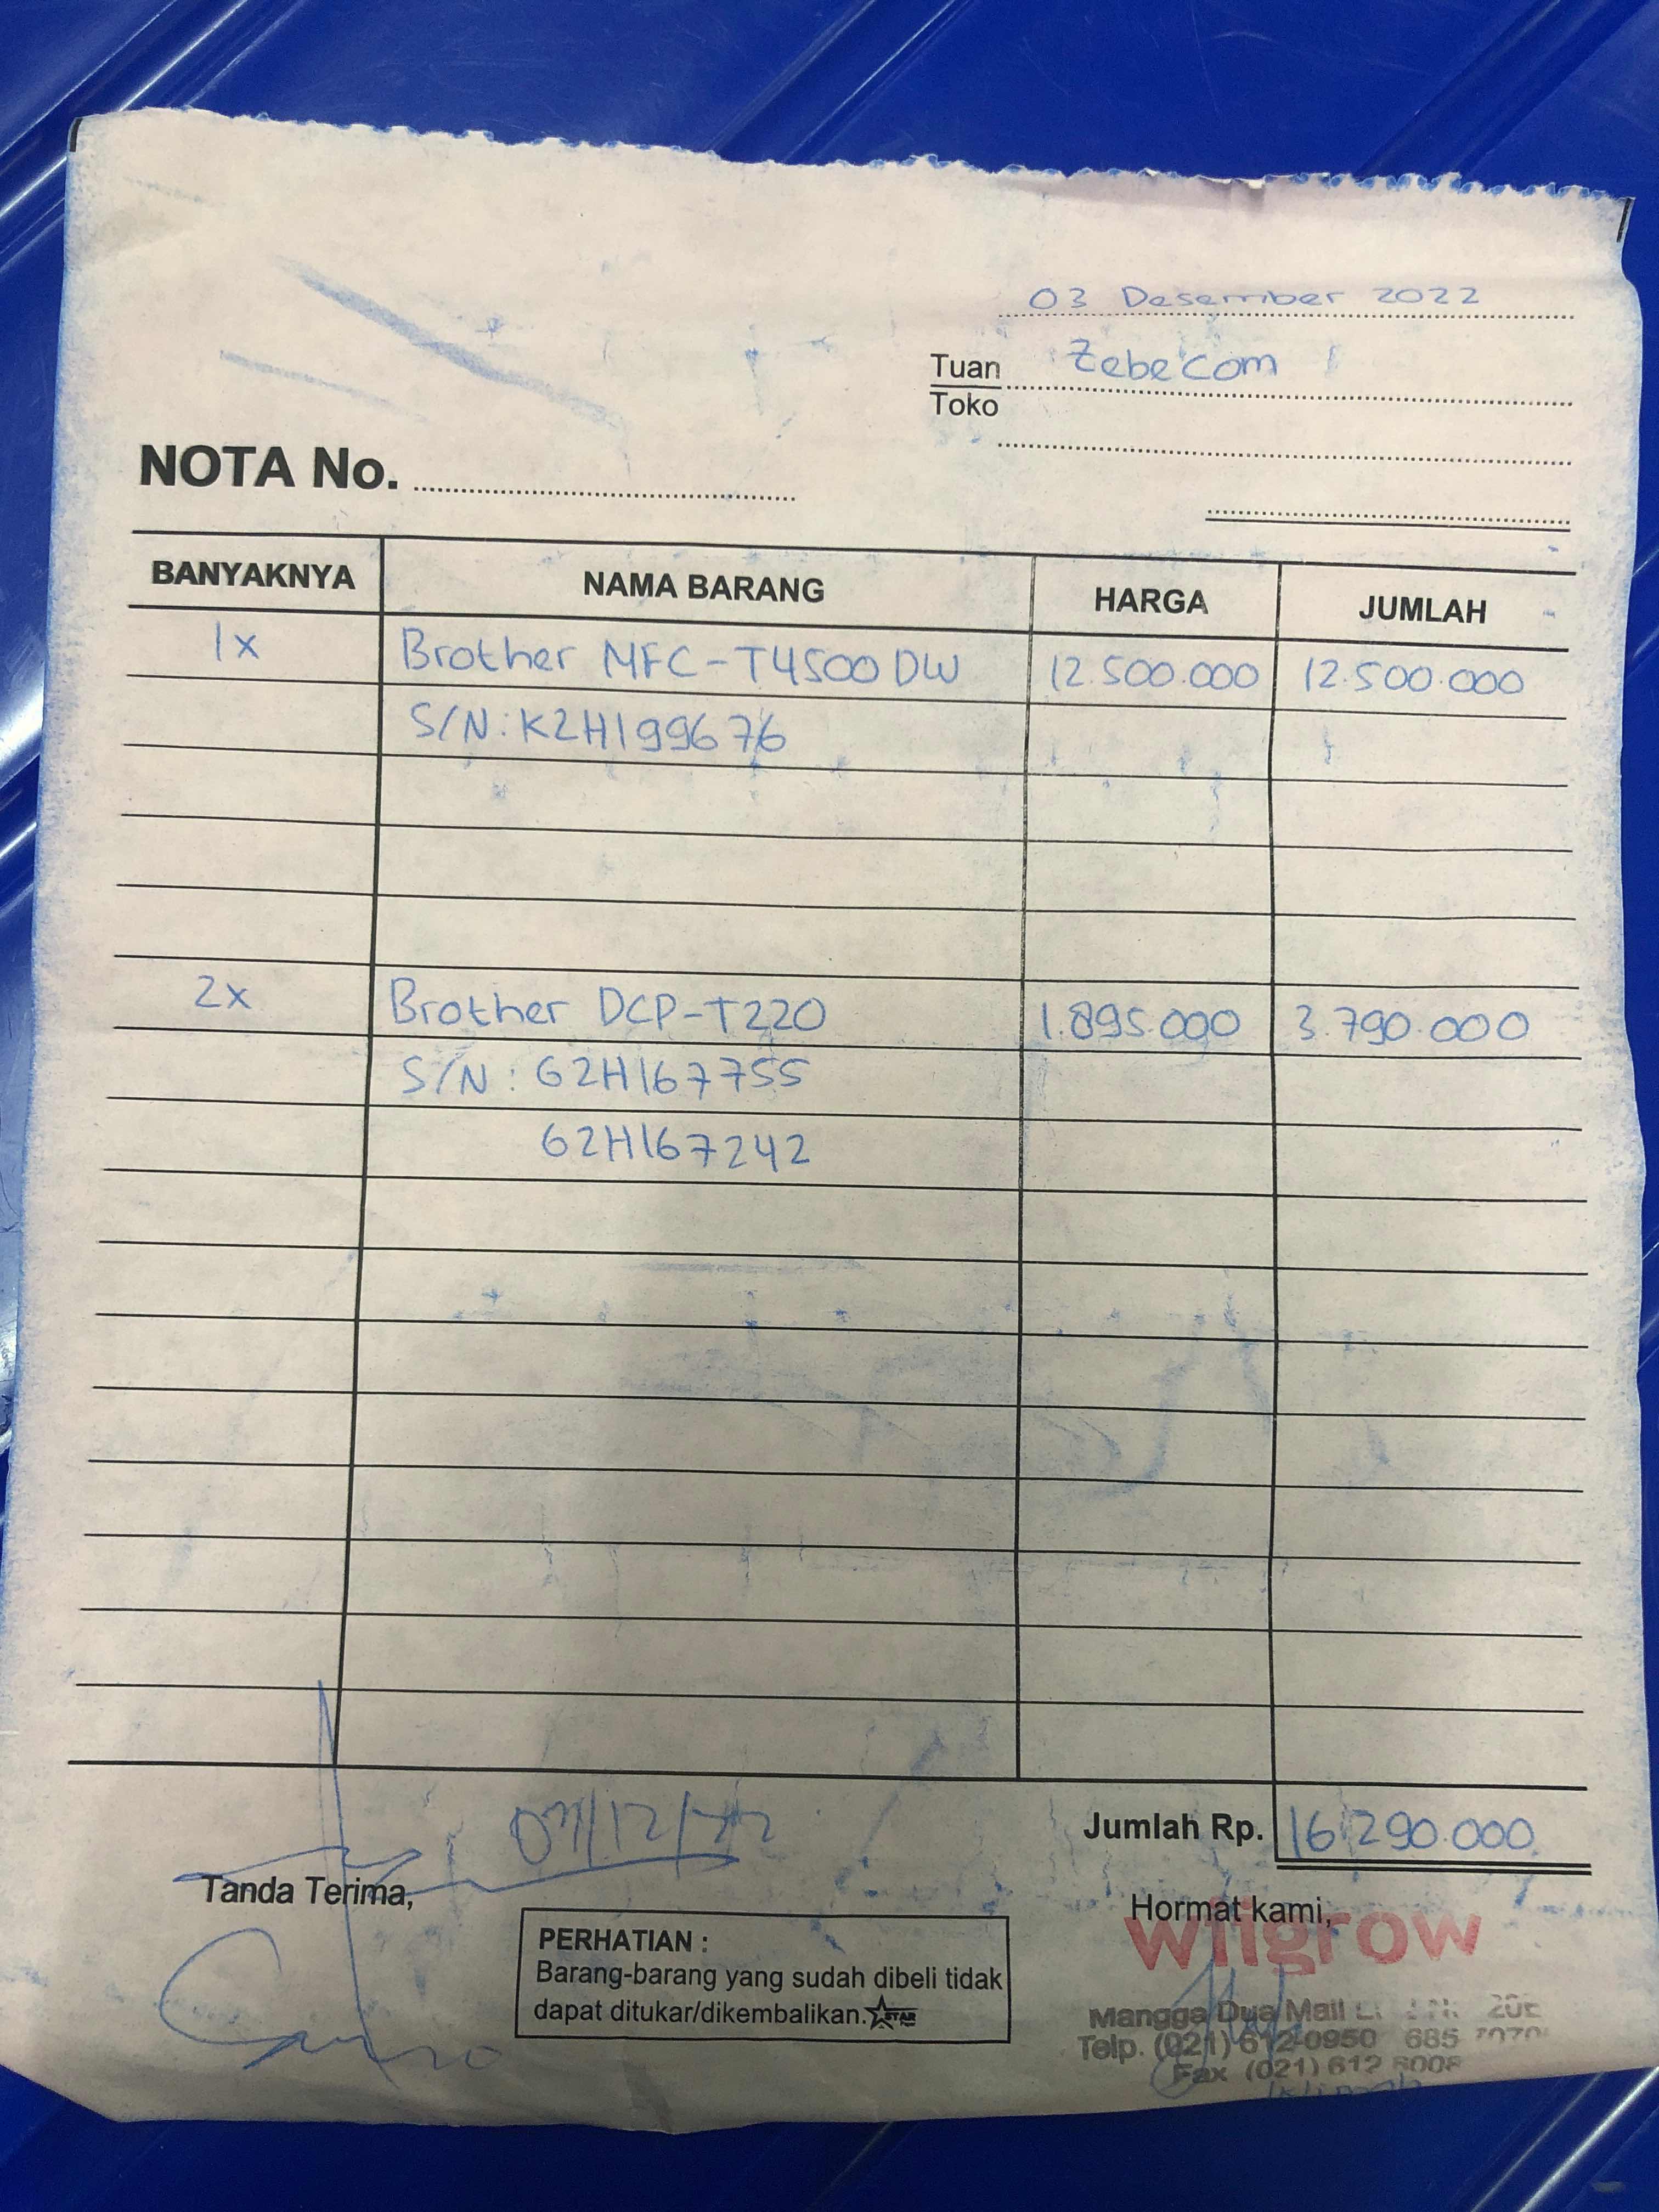 03 Desember 2022
Tuan Zebecom
Toko
NOTA No.
BANYAKNYA NAMA BARANG HARGA JUMLAH
1x Brother MFC-T4500 DW 12.500.000 12.500.000
S/N: K2H199676
2x Brother DCP-T220 1.895.000 3.790.000
S/N: G2H167755
G2H167242
Jumlah Rp. 16.290.000
Tanda Terima,
Hormat kami,
wiigrow
PERHATIAN :
Barang-barang yang sudah dibeli tidak
dapat ditukar/dikembalikan. STAR
Mangga Dua Mall
Telp. (021) 612-0950 685
Fax (021) 612